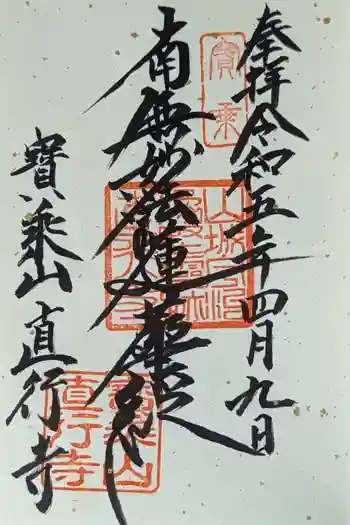 奉拝令和五年四月九日
寳乗
南無妙法蓮華経
寳乗山直行寺
寳乗山
直行寺